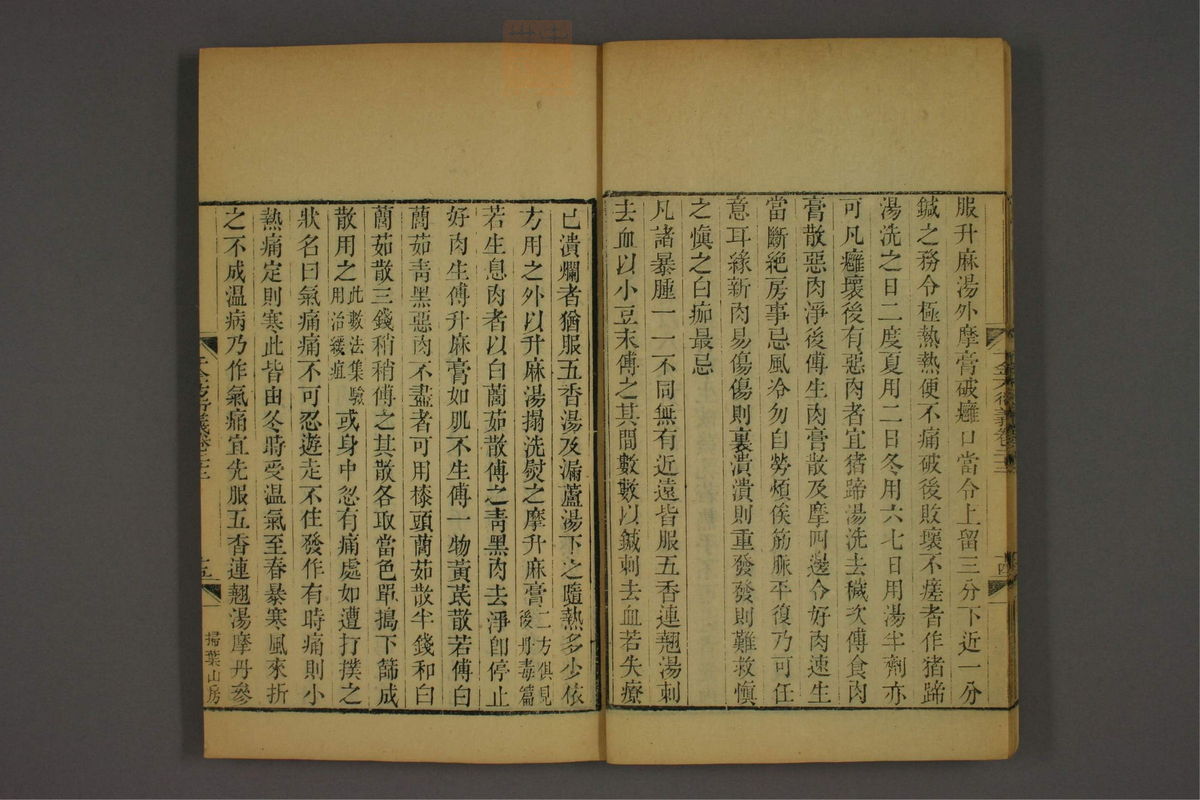 服升麻湯外摩膏破癰口當令上留三分下近一分
鍼之務令極熱熱便不痛破後敗壞不瘥者作猪蹄
湯洗之日二度夏用二日冬用六七日用湯半劑亦
可凡癰壞後有惡肉者宜猪蹄湯洗去穢次傅食肉
膏散惡肉淨後傅生肉膏散及摩四邊令好肉速生
當斷絶房事忌風冷勿自勞煩俟筋脈平復乃可任
意耳緣新肉易傷傷則裏潰潰則重發發則難救愼
之愼之白痂最忌
凡諸暴腫一一不同無有近遠皆服五香連翹湯刺
去血以小豆末傅之其間數數以鍼刺去血若失療
四
已潰爛者猶服五香湯及漏蘆湯下之隨熱多少依
方用之外以升麻湯搨洗熨之摩升麻膏二方俱見後丹毒篇
若生息肉者以白䕡茹散傅之靑黑肉去淨卽停止
好肉生傅升麻膏如肌不生傅一物黃芪散若傅白
䕡茹靑黑惡肉不盡者可用漆頭䕡茹散半錢和白
䕡茹散三錢稍稍傅之其散各取當色單搗下篩成
散用之此數法集驗用治緩疽或身中忽有痛處如遭打撲之
狀名曰氣痛痛不可忍遊走不住發作有時痛則小
熱痛定則寒此皆由冬時受温氣至春暴寒風來折
之不成温病乃作氣痛宜先服五香連翹湯摩丹參
五
掃葉山房